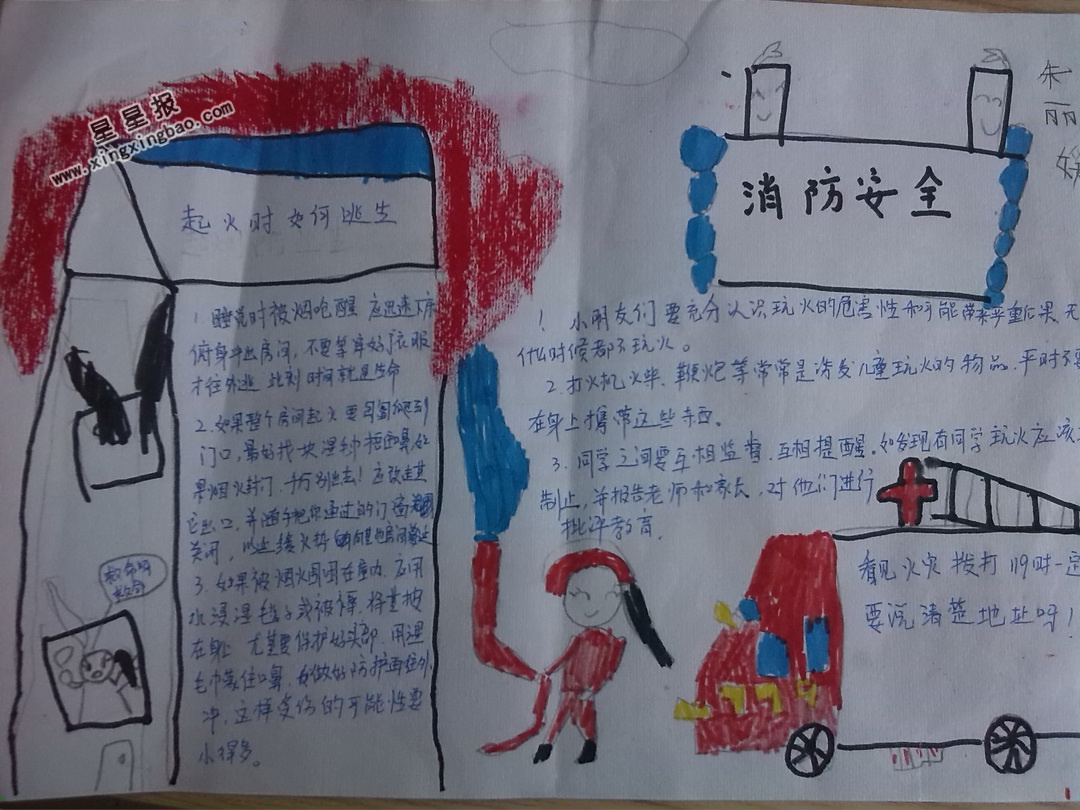 星星报
www.xingxingbao.com
起火时如何逃生
1 睡觉时被烟呛醒 应迅速下床
俯身冲出房间，不要等穿好了衣服
才往外逃 此刻时间就是生命
2.如果整个房间起火 要匍匐爬到
门口，最好找一块湿毛巾捂住口鼻，如
果烟火封门，千万别出去！应改走其
它出口，并随手把你通过的门窗
关闭，以延缓火势向其他房间蔓延
3.如果被烟火围困在室内，应用
水浸湿毯子或被褥，将其披
在身上 尤其要保护好头部，用湿
毛巾蒙住口鼻，做好防护再往外
冲，这样受伤的可能性要
小得多。
救命呀
救命
消防安全
朱
丽
1 小朋友们要充分认识玩火的危害性和可能带来严重后果 无
什么时候都不玩火。
2.打火机火柴、鞭炮等常常是诱发儿童玩火的物品，平时不要
在身上携带这些东西。
3.同学之间要互相监督，互相提醒。如发现有同学玩火应该
制止，并报告老师和家长，对他们进行
批评教育。
看见火灾拨打119时一定
要说清楚地址呀！